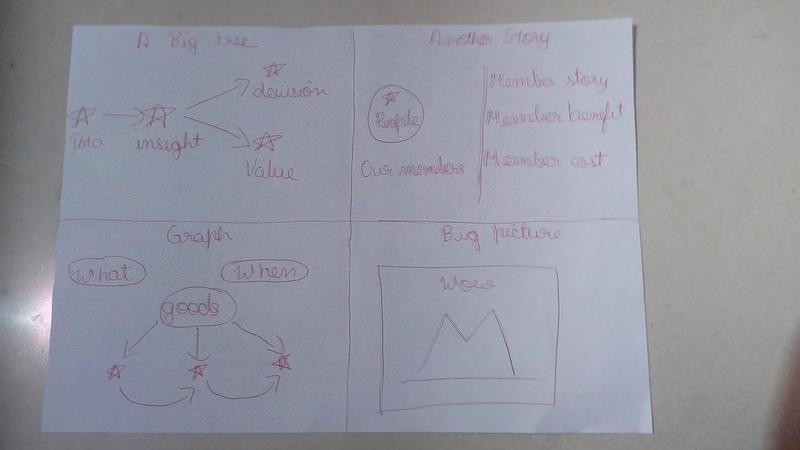 A Big tree
decision
Data
insight
Value
Another Story
People
Our members
Member story
Member benefit
Member cost
Graph
What
When
goods
Big picture
Wow